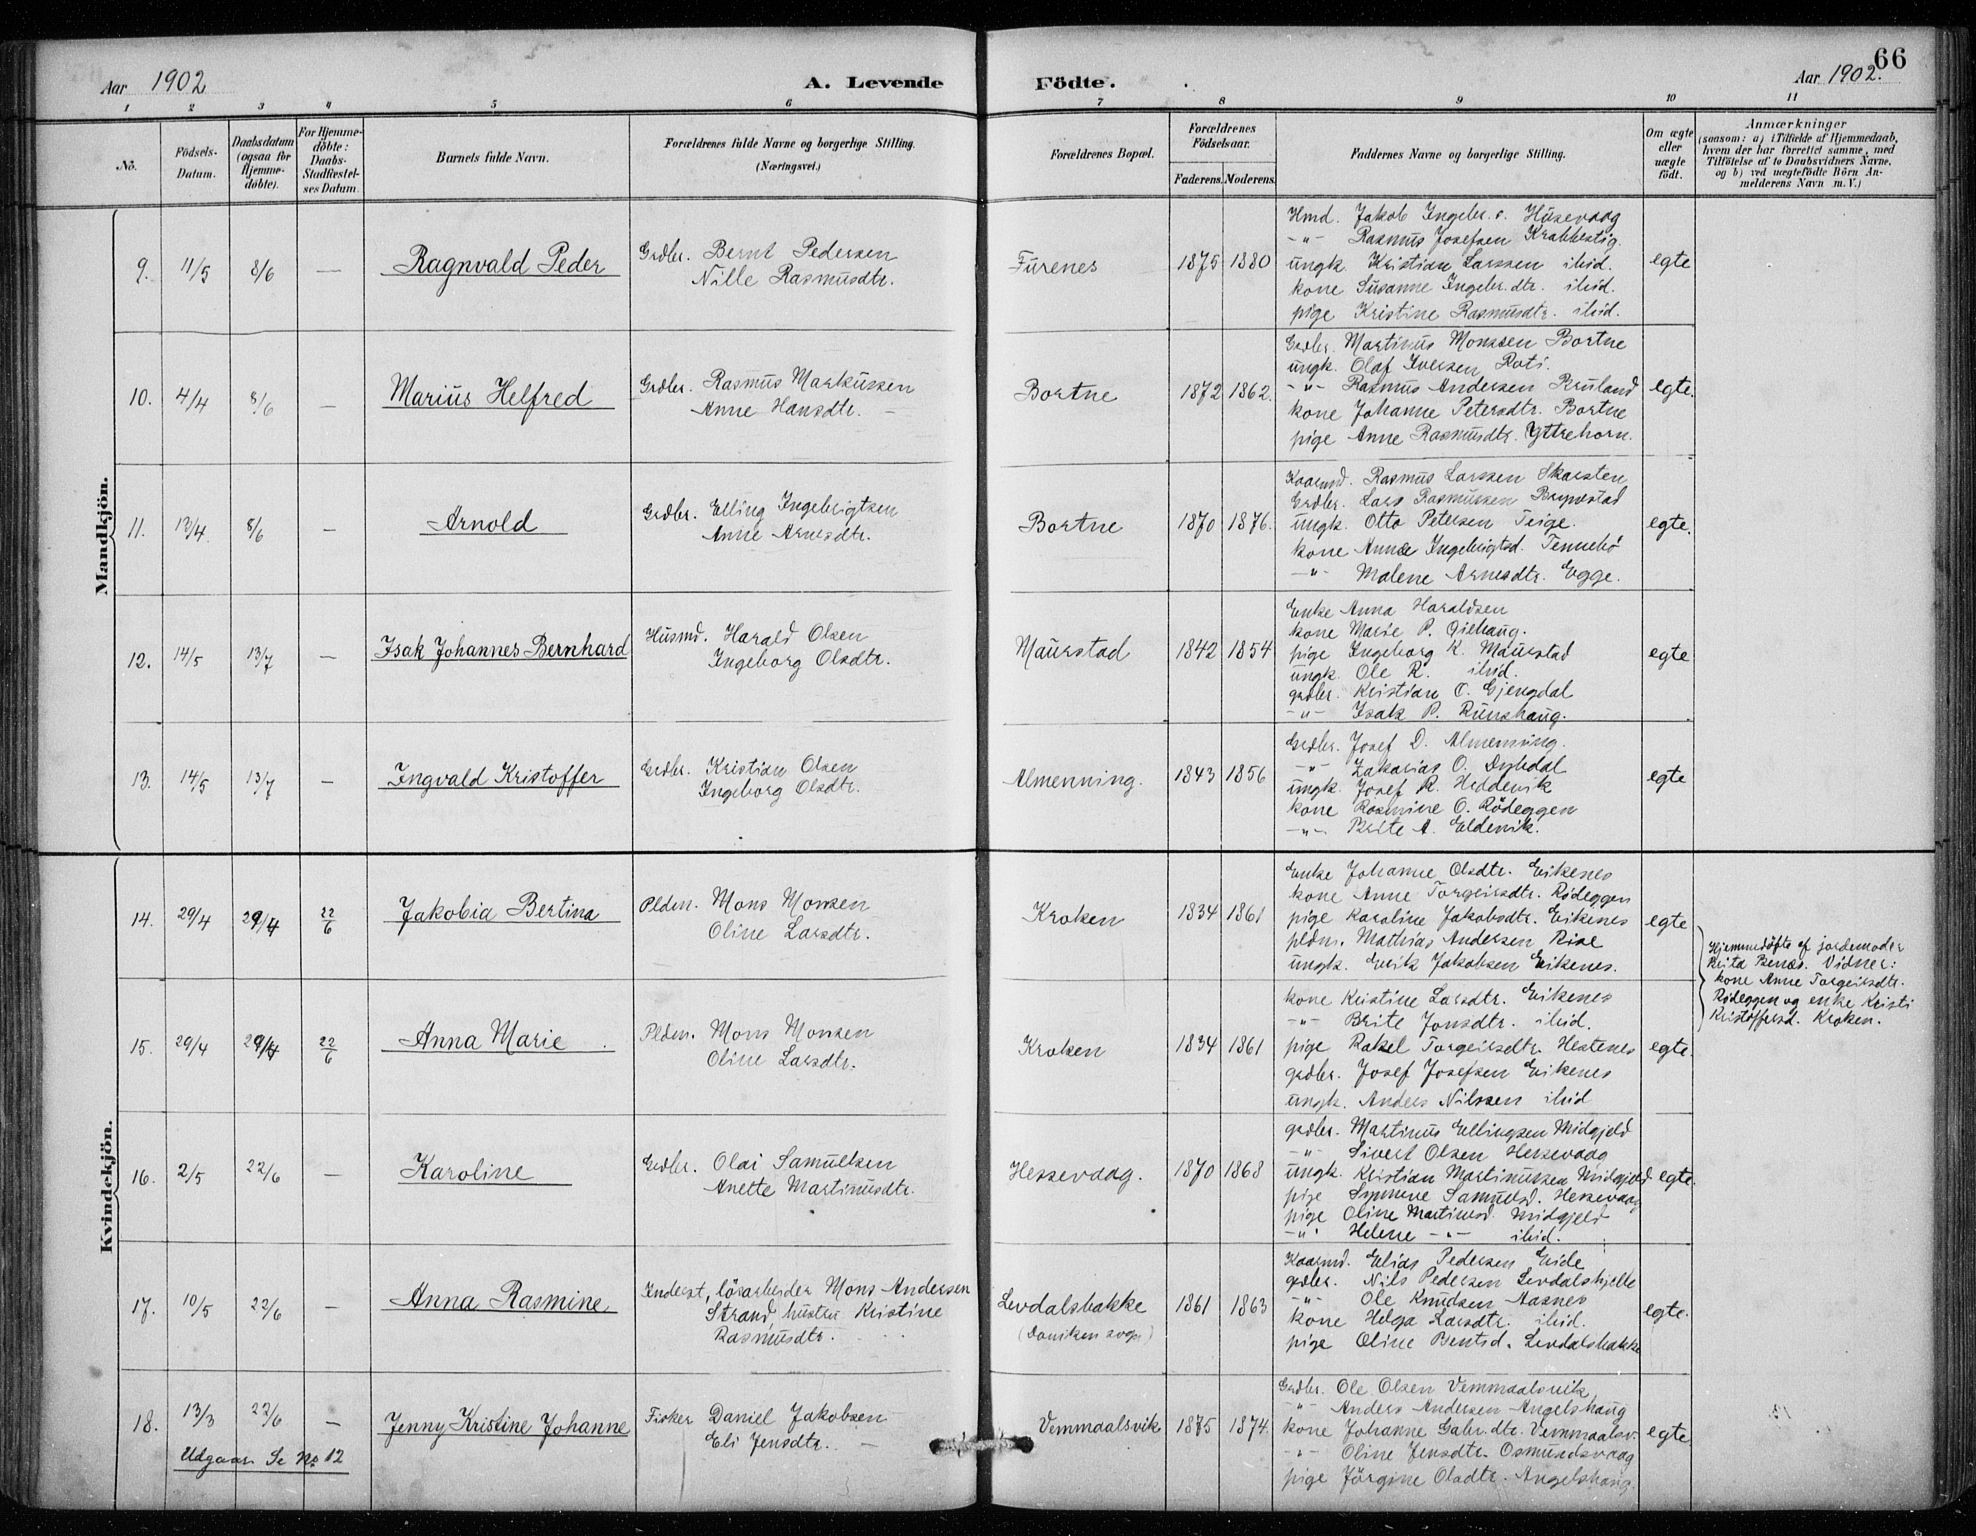 66
Aar 1902
A. Levende
Födte.
Aar 1902.
1 2 3 4 5 6 7 8 9 10 11
No.
Födsels-Datum.
Daabsdatum (ogsaa for Hjemme-döbte).
For Hjemme-döbte: Daabs-Stadfæstel-ses Datum.
Barnets fulde Navn.
Forældrenes fulde Navne og borgerlige Stilling. (Næringsvei.)
Forældrenes Bopæl.
Forældrenes Födselsaar.
Faderens. Moderens.
Faddernes Navne og borgerlige Stilling.
Om ægte eller uægte födt.
Anmærkninger
(saasom: a) i Tilfælde af Hjemmedaab, hvem der har forrettet samme, med Tilföielse af to Daabsvidners Navne. og b) ved uægtefödte Börn An-melderens Navn m. V.)
Mandkjön.
9. 11/5 8/6 — Ragnvald Peder
Grdbr. Bernt Pedersen
Nille Rasmusdtr.
Furenes 1875 1880
Hmd. Jakob Ingebr.s. Husevaag
-"- Rasmus Josefsen Krabbestig.
ungk. Kristian Larssen ibid.
kone Susanne Ingebr.dtr. ibid.
pige Kristine Rasmusdtr. ibid.
egte
10. 4/4 8/6 — Marius Helfred
Grdbr. Rasmus Markussen
Anne Hansdtr. —
Bortne 1872 1862.
Grdbr. Martinus Monssen Bortne
ungk. Olaf Iversen Roti.
-"- Rasmus Andersen Bruland
kone Johanne Petersdtr. Bortne
pige Anne Rasmusdtr. Yttrehorn.
egte.
11. 13/4 8/6 — Arnold
Grdbr. Elling Ingebrigtsen
Anne Arnesdtr.
Bortne 1870 1876.
Kaarmd. Rasmus Larssen Skarsten
Grdbr. Lars Rasmussen Rypestad
ungk. Otto Petersen Teige.
kone Annæ Ingebrigtsd. Tennebö
-"- Malene Arnesdtr. Egge.
egte.
12. 14/5 13/7 — Isak Johannes Bernhard
Husmd. Harald Olsen
Ingeborg Olsdtr.
Maurstad 1842 1854
Enke Anna Haraldsen
kone Marie P. Gilhaug.
pige Ingeborg K. Maurstad
ungk. Ole R. ibid.
grdbr. Kristian O. Gjengdal
-"- Isak P. Runshaug.
egte
13. 14/5 13/7 — Ingvald Kristoffer
Grdbr. Kristian Olsen
Ingeborg Olsdtr.
Almenning. 1843 1856
Grdbr. Josef D. Almenning.
-"- Zakarias O. Dybdal
ungk. Josef R. Heddevik
kone Rasmine O. Rödeggen
-"- Brite A. Eldevik.
egte
Kvindekjön.
14. 29/4 29/4 22/6 Jakobia Bertina
Pldsm. Mons Monsen
Oline Larsdtr.
Kroken 1834 1861
Enke Johanne Olsdtr. Eikenes
kone Anne Torgeirsdtr. Rödeggen
pige Karoline Jakobsdtr. Eikenes
pldm. Mathias Andersen Rise
ungk. Erik Jakobsen Eikenes.
egte
Hjemmedöbte af jordemoder
Brita Benæs. Vidner:
kone Anne Torgeirsdtr.
Rödeggen og enke Kristi
Kristoffersd. Kroken.
15. 29/4 29/4 22/6 Anna Marie
Pldsm. Mons Monsen
Oline Larsdtr.
Kroken 1834 1861
kone Kristine Larsdtr. Eikenes
-"- Brite Jonsdtr. ibid.
pige Rakel Torgeirsdtr. Hestenes
grdbr. Josef Josefsen Eikenes
ungk. Anders Nilssen ibid
egte.
16. 2/5 22/6 — Karoline
Grdbr. Olai Samuelsen
Anette Martinusdtr.
Hessevaag. 1870 1868
grdbr. Martinus Ellingsen Midgjeld
-"- Sivert Olsen Hessevaag
ungk. Kristian Martinussen Midgjeld
pige Synneve Samuelsd. Hessevaag
pige Oline Martinusd. Midgjeld
-"- Helene -"- ibid.
egte.
17. 10/5 22/6 — Anna Rasmine
Inderst, lösarbeider Mons Andersen
Strand, hustru Kristine
Rasmusdtr.
Levdalsbakke
(Daviken sogn)
1861 1863
Kaarmd. Elias Pedersen Eide
grdbr. Nils Pedersen Levdalshjelle
-"- Ole Knudsen Aasnes
kone Helga Larsdtr. ibid.
pige Oline Bentsd. Levdalsbakke
egte.
18. 13/3 22/6 — Jenny Kristine Johanne
Udgaar. Se No 12
Fisker Daniel Jakobsen
Eli Jensdtr. —
Vemmaalsvik 1875 1874.
Grdbr. Ole Olsen Vemmaalsvik
-"- Anders Andersen Angelshaug
kone Johanne Gabr.dtr. Vemmaalsv.
-"- Oline Jensdtr. Osmundsvaag
pige Jörgine Olsdtr. Angelshaug.
egte